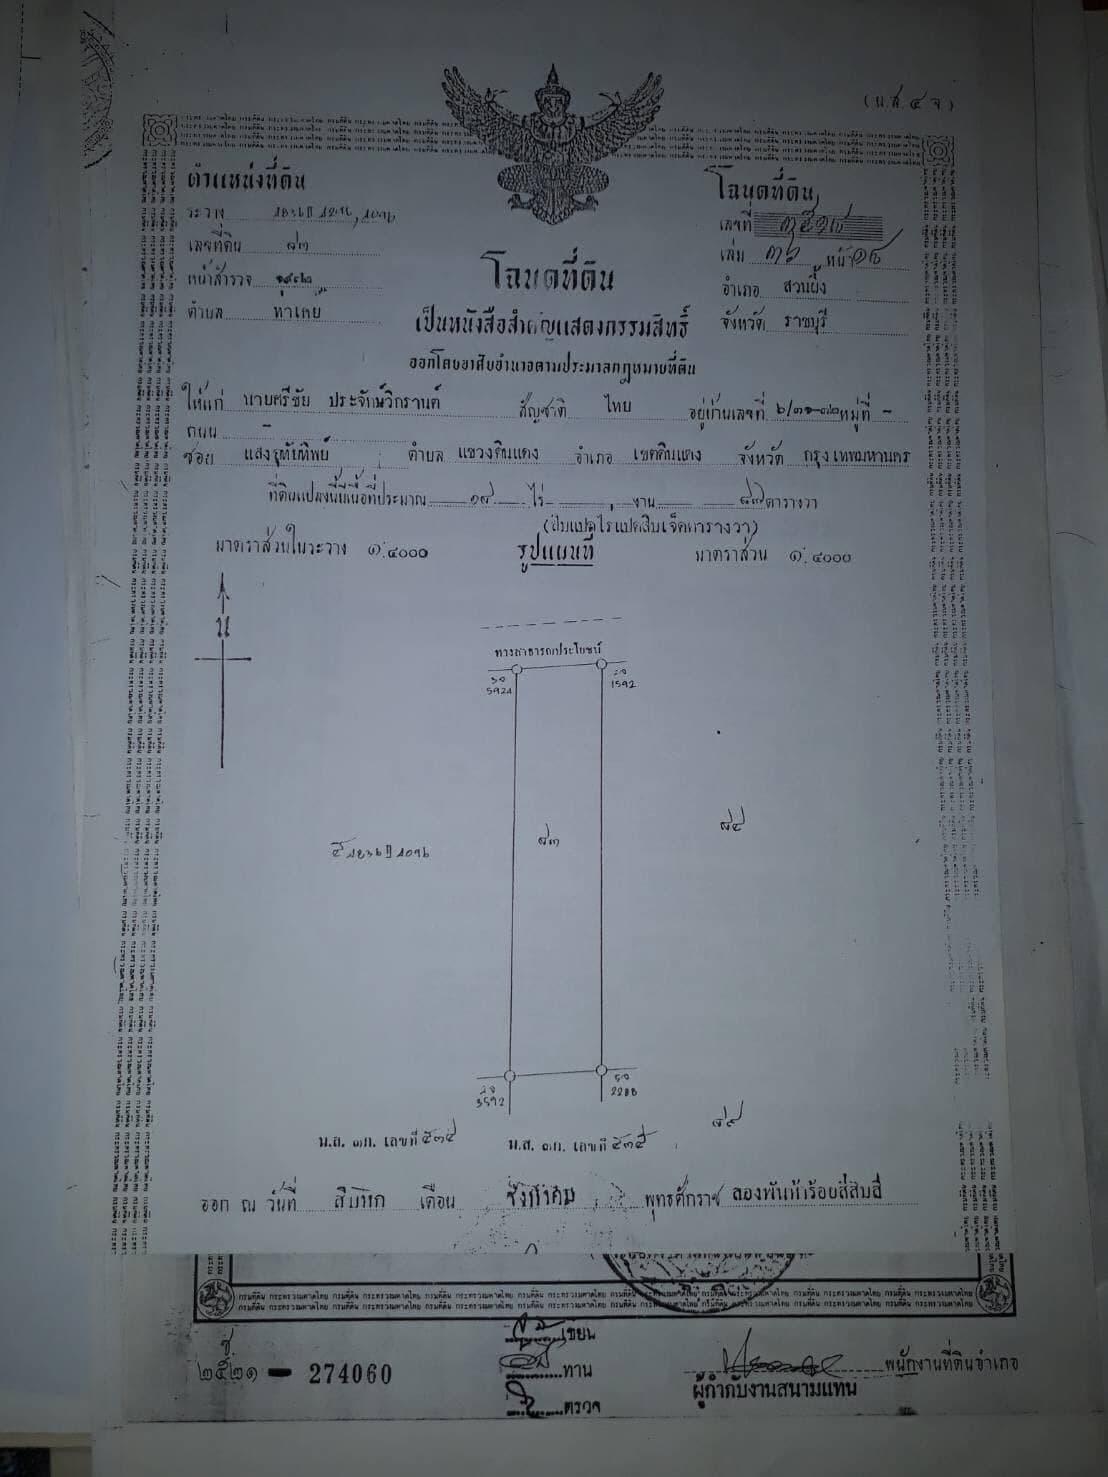 (น.ส. ๔ จ)
ตำแหน่งที่ดิน
โฉนดที่ดิน
ระวาง
เลขที่
เลขที่ดิน ๘๓
เล่ม ๓๖ หน้า ๑๘
หน้าสำรวจ
อำเภอ สวนผึ้ง
ตำบล ท่าเคย
จังหวัด ราชบุรี
โฉนดที่ดิน
เป็นหนังสือสำคัญแสดงกรรมสิทธิ์
ออกโดยอาศัยอำนาจตามประมวลกฎหมายที่ดิน
ให้แก่ นายศรีชัย ประจักษ์วิกรานต์ สัญชาติ ไทย อยู่บ้านเลขที่ ๖/๓๑-๓๒ หมู่ที่ -
ถนน -
ซอย ตำบล แขวงดินแดง อำเภอ เขตดินแดง จังหวัด กรุงเทพมหานคร
ที่ดินแปลงนี้มีเนื้อที่ประมาณ ๑๘ ไร่ - งาน ๘๗ ตารางวา
(สิบแปดไร่แปดสิบเจ็ดตารางวา)
มาตราส่วนในระวาง ๑:๔๐๐๐
รูปแผนที่
มาตราส่วน ๑:๔๐๐๐
น
ทางสาธารณประโยชน์
5924
1592
๘๔
๘๓
3592
2288
๘๙
น.ส. ๓ก. เลขที่ ๕๓๔
น.ส. ๓ก. เลขที่ ๕๓๕
ออก ณ วันที่ สิบหก เดือน สิงหาคม พุทธศักราช สองพันห้าร้อยสี่สิบสี่
กรมที่ดิน กระทรวงมหาดไทย
ช
๒๕๒๑ - 274060
เขียน
ทาน
ตรวจ
พนักงานที่ดินอำเภอ
ผู้กำกับงานสนามแทน